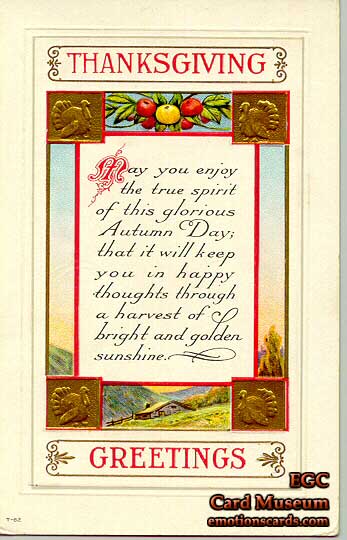 THANKSGIVING
May you enjoy
the true spirit
of this glorious
Autumn Day;
that it will keep
you in happy
thoughts through
a harvest of
bright and golden
sunshine.
GREETINGS
T-62
EGC
Card Museum
emotionscards.com